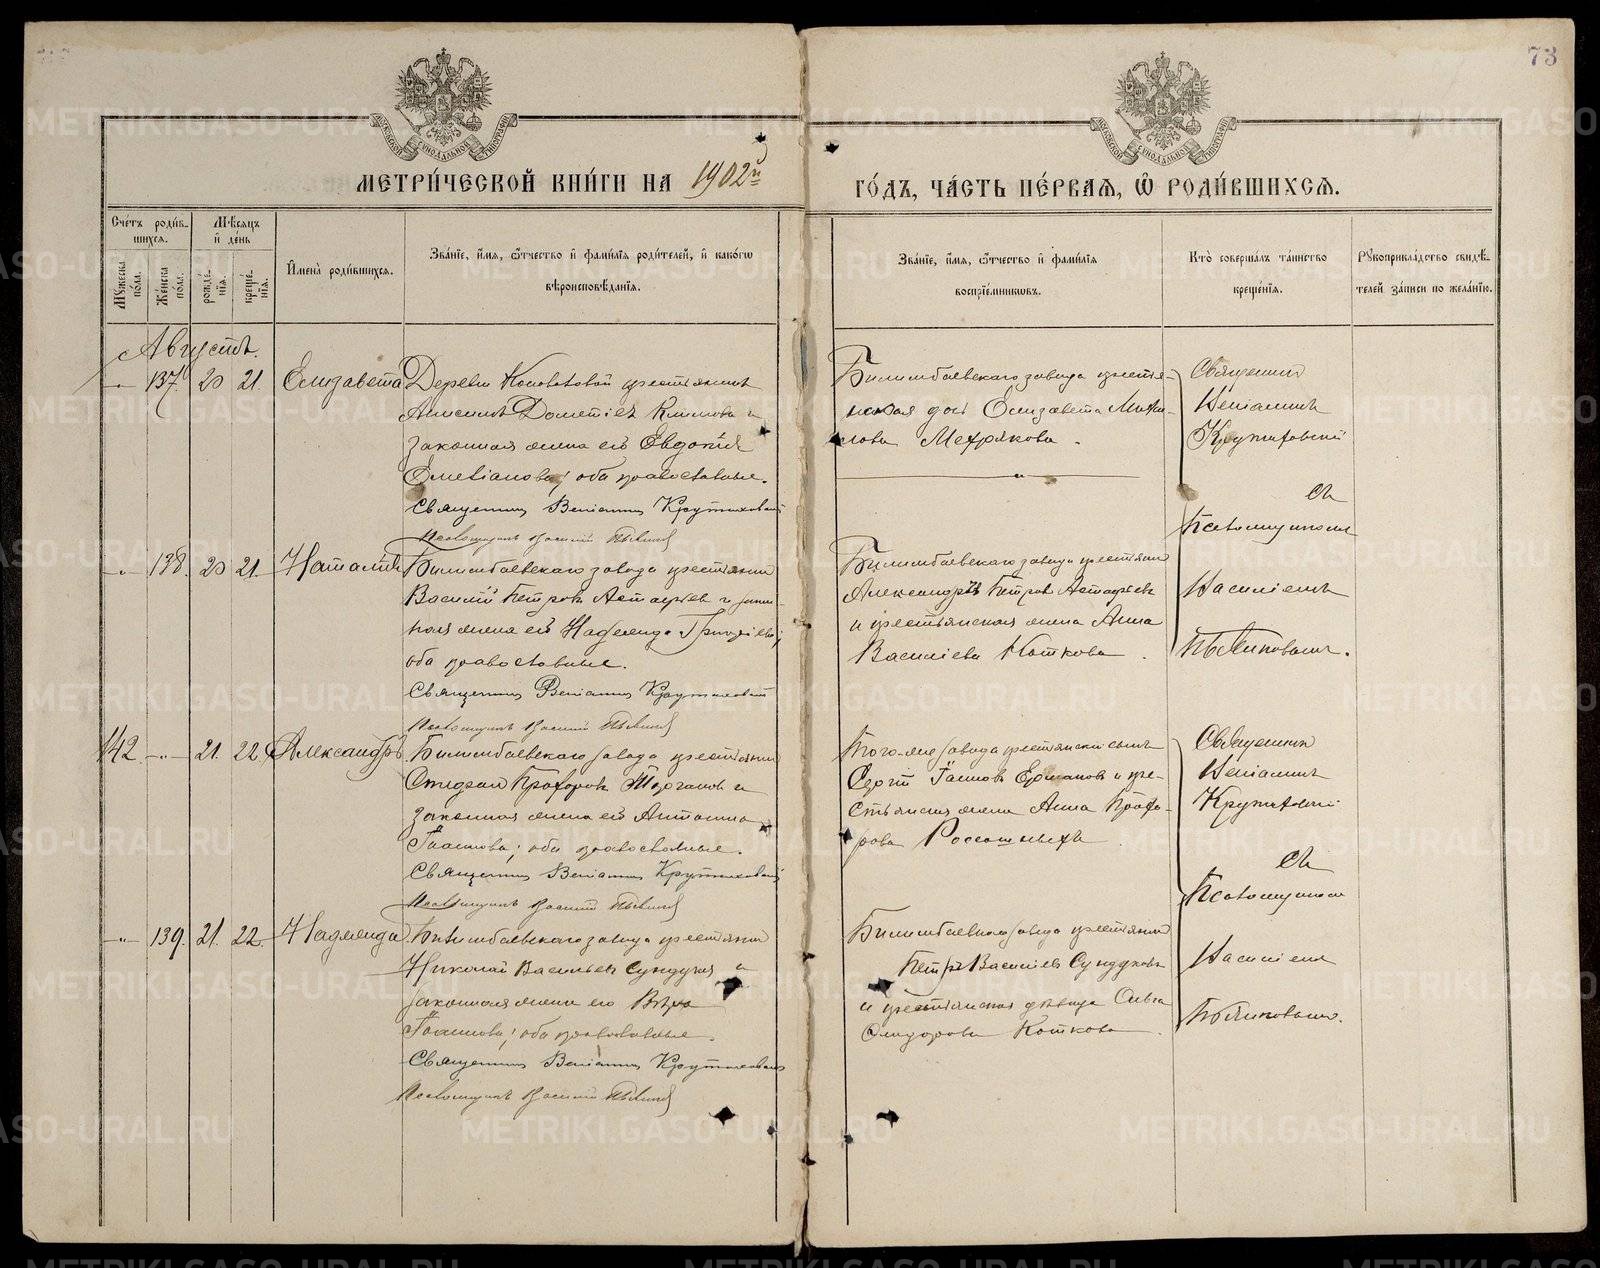 73
МОСКОВСКОЙ СѴНОДАЛЬНОЙ ТИПОГРАФІИ
МОСКОВСКОЙ СѴНОДАЛЬНОЙ ТИПОГРАФІИ
МЕТРИ́ЧЕСКОЙ КНИ́ГИ НА 1902й
ГО́ДЪ, ЧА́СТЬ ПЕ́РВАѦ, Ѽ РОДИ́ВШИХСѦ.
Сче́тъ роди́в-
шихсѧ.
Мѣ́сѧцъ
и҆ де́нь
Мꙋ́жеска по́ла.
Же́нска по́ла.
рожде́-
нїѧ.
креще́-
нїѧ.
И҆мена̀ роди́вшихсѧ.
Зва́нїе, и҆́мѧ, ѻ҆́тчество и҆ фами́лїѧ роди́телей, и҆ како́гѡ
вѣроисповѣ́данїѧ.
Зва́нїе, и҆́мѧ, ѻ҆́тчество и҆ фами́лїѧ
воспрїе́мникѡвъ.
Кто̀ соверша́лъ та́инство
креще́нїѧ.
Рꙋкоприкла́дство свидѣ́-
телей за́писи по жела́нїю.
Августъ.
137. 20 21. Елизавета
Деревни Коноваловой крестьянинъ
Анисимъ Дометіевъ Климовъ и
законная жена его Евдокія
Емеліанова; оба православные.
Священникъ Веніаминъ Крутиховскій
Псаломщикъ Василій
Билимбаевскаго завода крестья-
нская дочь Елизавета Михаи-
лова Мехрякова.
Священникъ
Веніаминъ
Крутиховскій
съ
Псаломщикомъ
Василіемъ
138. 20 21. Наталія
Билимбаевскаго завода крестьянинъ
Василій Петровъ Астафьевъ и закон-
ная жена его Надежда Григоріева;
оба православные.
Священникъ Веніаминъ Крутиховскій
Псаломщикъ Василій
Билимбаевскаго завода крестьянинъ
Александръ Петровъ Астафьевъ
и крестьянская жена Анна
Василіева Коткова.
142 21. 22 Александръ
Билимбаевскаго завода крестьянинъ
Прохоровъ и
законная жена его Антонина
Іоаннова; оба православные.
Священникъ Веніаминъ Крутиховскій
Псаломщикъ Василій
Того-же завода крестьянскій сынъ
Сергій Іоанновъ Ермаковъ и кре-
стьянская жена Анна Прохо-
рова Россошныхъ
Священникъ
Веніаминъ
Крутиховскій
съ
Псаломщикомъ
Василіемъ
139. 21. 22. Надежда
Билимбаевскаго завода крестьянинъ
Николай Васильевъ Сундуковъ и
законная жена его Вѣра
Іоаннова; оба православные.
Священникъ Веніаминъ Крутиховскій
Псаломщикъ Василій
Билимбаевскаго завода крестьянинъ
Петръ Василіевъ Сундуковъ
и крестьянская дѣвица
Сидорова Коткова.
METRIKI.GASO-URAL.RU